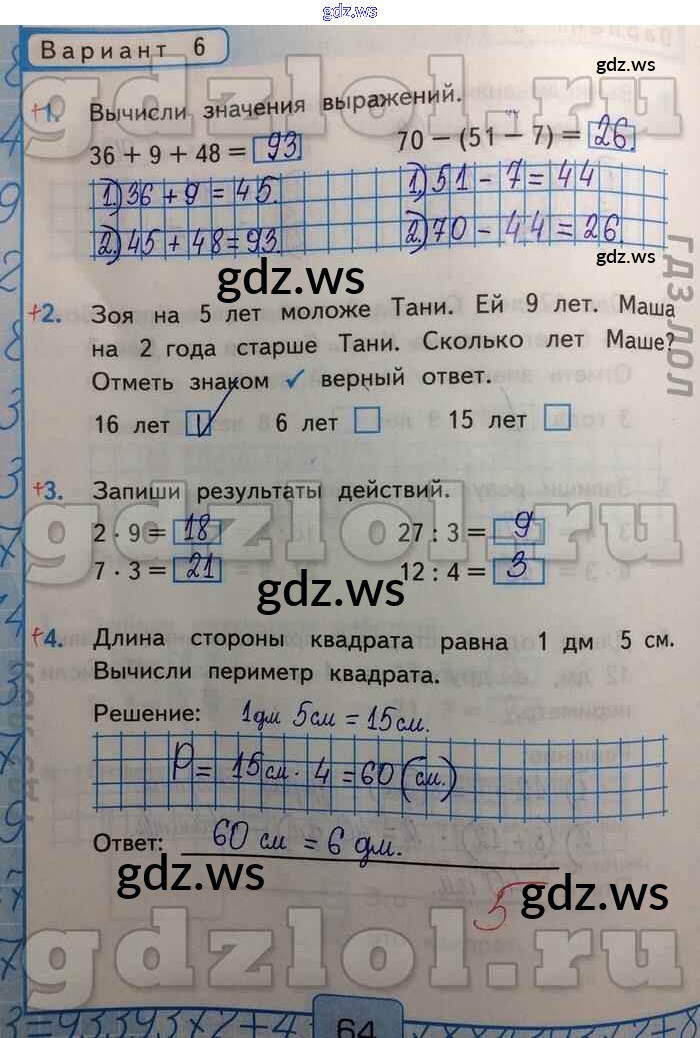 gdz.ws
Вариант 6
gdz.ws
gdzlol.ru
+1. Вычисли значения выражений.
36 + 9 + 48 = 93
70 − (51 − 7) = 26.
1) 36 + 9 = 45.
1) 51 - 7 = 44
2) 45 + 48 = 93
2) 70 - 44 = 26
gdz.ws
gdz.ws
ГДЗ ЛОЛ
+2. Зоя на 5 лет моложе Тани. Ей 9 лет. Маша
на 2 года старше Тани. Сколько лет Маше?
Отметь знаком ✓ верный ответ.
16 лет ✓ 6 лет 15 лет
+3. Запиши результаты действий.
gdzlol.ru
2 · 9 = 18 27 : 3 = 9
7 · 3 = 21 12 : 4 = 3
gdz.ws
+4. Длина стороны квадрата равна 1 дм 5 см.
Вычисли периметр квадрата.
Решение: 1 дм 5 см = 15 см.
P = 15 см · 4 = 60 (см.)
ГДЗ ЛОЛ
Ответ: 60 см = 6 дм.
gdz.ws
5
gdz.ws
gdzlol.ru
64